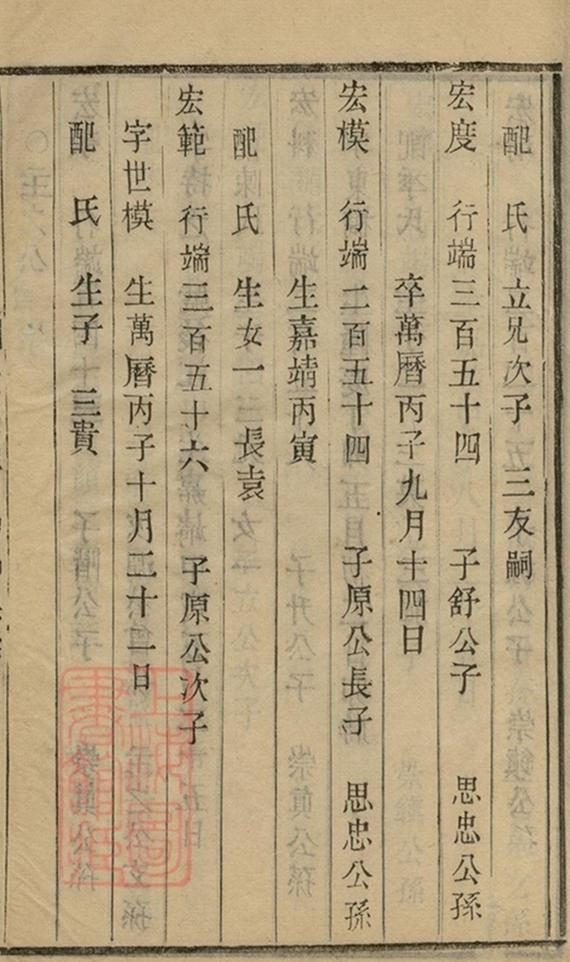 配　氏　立兄次子　三友嗣
宏度　行端三百五十四　子舒公子　思忠公孫
卒萬曆丙子九月十四日
宏模　行端二百五十四　子原公長子　思忠公孫
生嘉靖丙寅
配　氏　生女一　長袁
宏範　行端三百五十六　子原公次子
字世模　生萬曆丙子十月二十二日
配　氏　生子　三貴